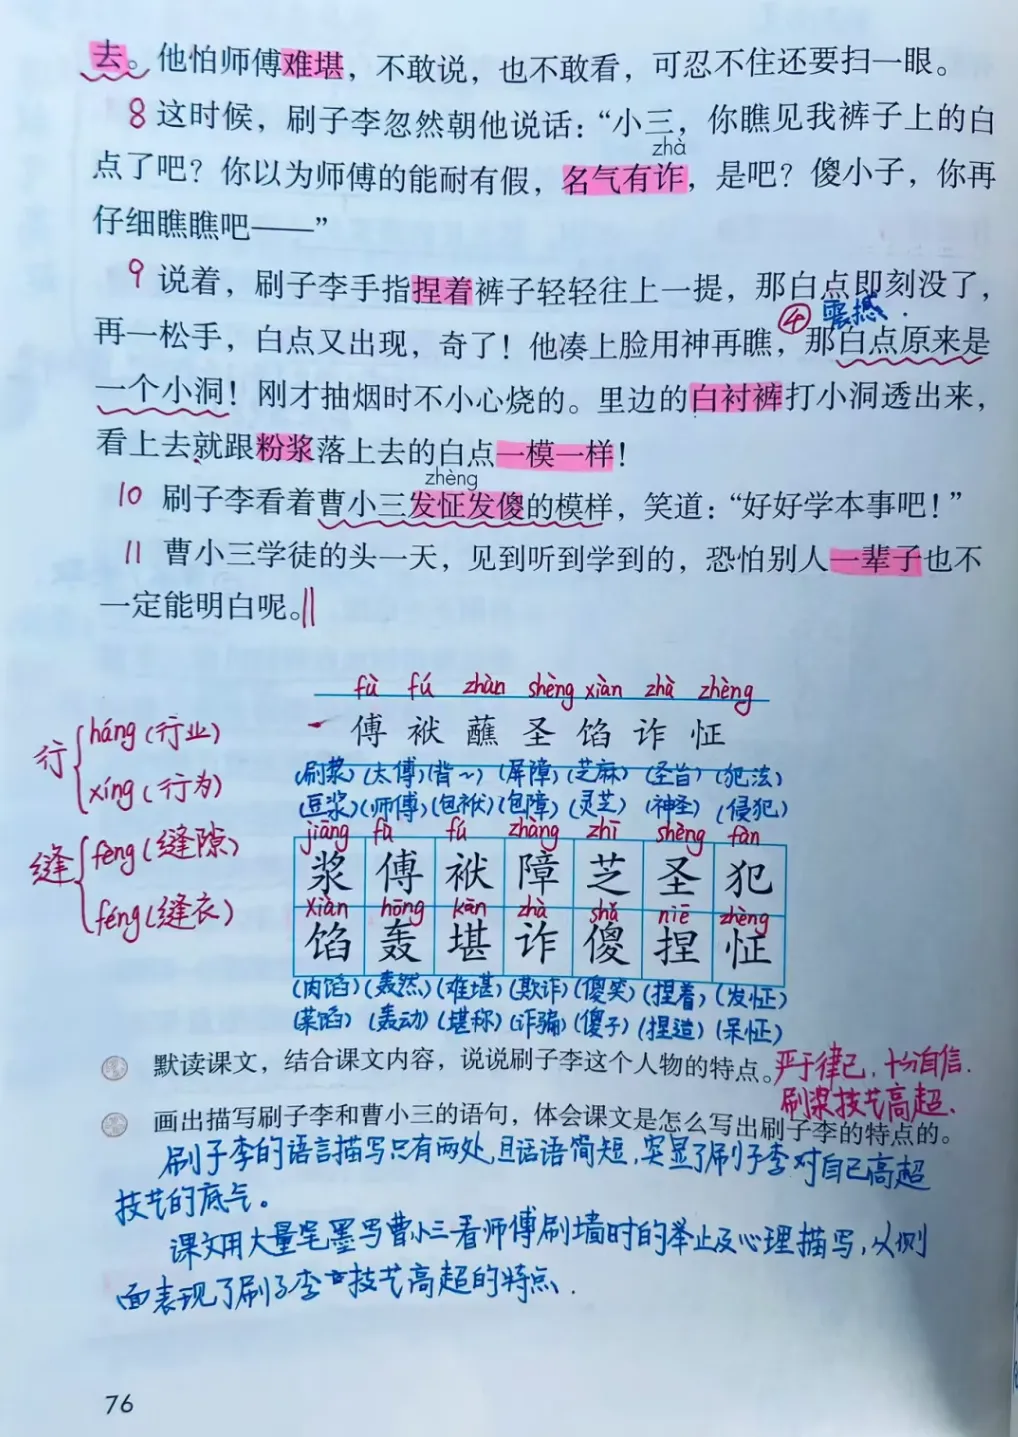 去。他怕师傅难堪，不敢说，也不敢看，可忍不住还要扫一眼。
8 这时候，刷子李忽然朝他说话：“小三，你瞧见我裤子上的白
zhà
点了吧？你以为师傅的能耐有假，名气有诈，是吧？傻小子，你再
仔细瞧瞧吧——”
9 说着，刷子李手指捏着裤子轻轻往上一提，那白点即刻没了，
④ 震撼.
再一松手，白点又出现，奇了！他凑上脸用神再瞧，那白点原来是
一个小洞！刚才抽烟时不小心烧的。里边的白衬裤打小洞透出来，
看上去就跟粉浆落上去的白点一模一样！
zhèng
10 刷子李看着曹小三发怔发傻的模样，笑道：“好好学本事吧！”
11 曹小三学徒的头一天，见到听到学到的，恐怕别人一辈子也不
一定能明白呢。
fù fú zhàn shèng xiàn zhà zhèng
傅 袱 蘸 圣 馅 诈 怔
行 háng（行业）
xíng（行为）
缝 fèng（缝隙）
féng（缝衣）
（刷浆）（太傅）（背～）（屏障）（芝麻）（圣旨）（犯法）
（豆浆）（师傅）（包袱）（包障）（灵芝）（神圣）（侵犯）
jiāng fù fú zhàng zhī shèng fàn
浆 傅 袱 障 芝 圣 犯
xiàn hōng kān zhà shǎ niē zhèng
馅 轰 堪 诈 傻 捏 怔
（肉馅）（轰然）（难堪）（欺诈）（傻笑）（捏着）（发怔）
（菜馅）（轰动）（堪称）（诈骗）（傻子）（捏造）（呆怔）
默读课文，结合课文内容，说说刷子李这个人物的特点。严于律己，十分自信.
刷浆技艺高超.
画出描写刷子李和曹小三的语句，体会课文是怎么写出刷子李的特点的。
刷子李的语言描写只有两处，且话语简短，突显了刷子李对自己高超
技艺的底气。
课文用大量笔墨写曹小三看师傅刷墙时的举止及心理描写，从侧
面表现了刷子李技艺高超的特点.
76